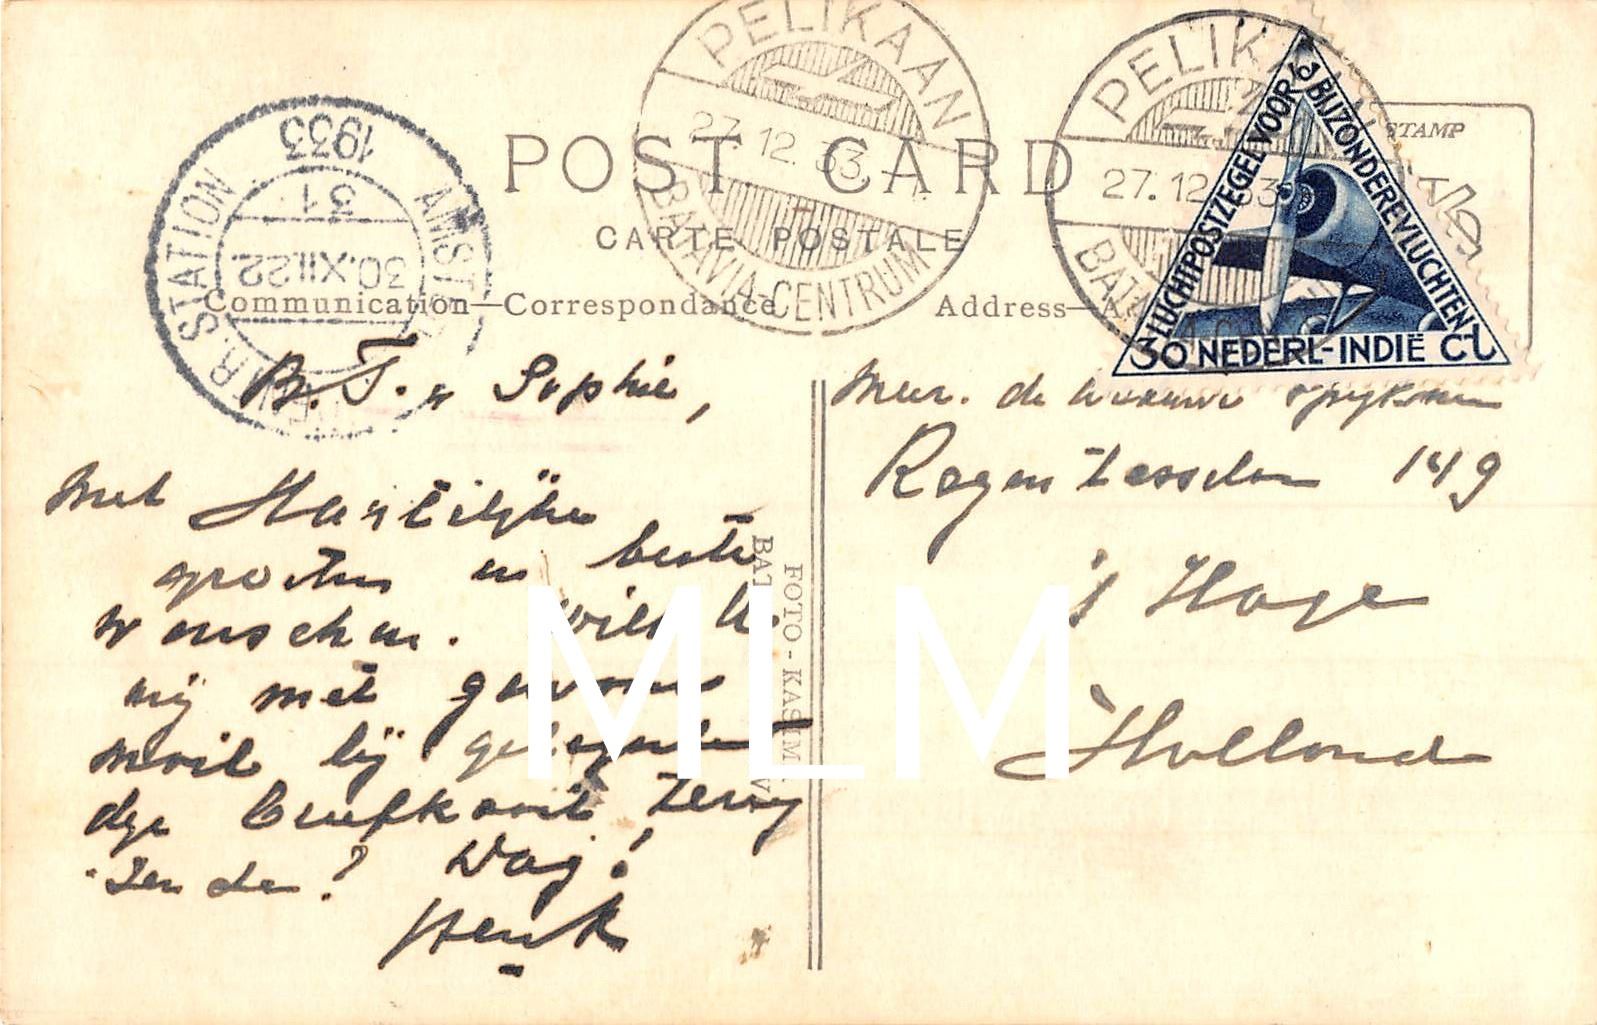 PELIKAAN
27.12.33.
BATAVIA-CENTRUM
PELIKAAN
27.12.33
BATAVIA-CENTRUM
LUCHTPOSTZEGEL VOOR BIJZONDERE VLUCHTEN
30 NEDERL-INDIË CT
STAMP
1933
31
30.XII.22
AMST
R.STATION
POST CARD
CARTE POSTALE
Communication—Correspondance
Address—A
B. T. & Sophie,
Met Hartelijke
groeten en beste
wenschen. Wilt U
mij met gewone
mail bij gelegenhei
dge briefkaart terug
zenden? Dag!
Henk
FOTO-KASIM
BAT
V.
Mevr. de
Regentesselaan 149
's Hage
Holland
MLM